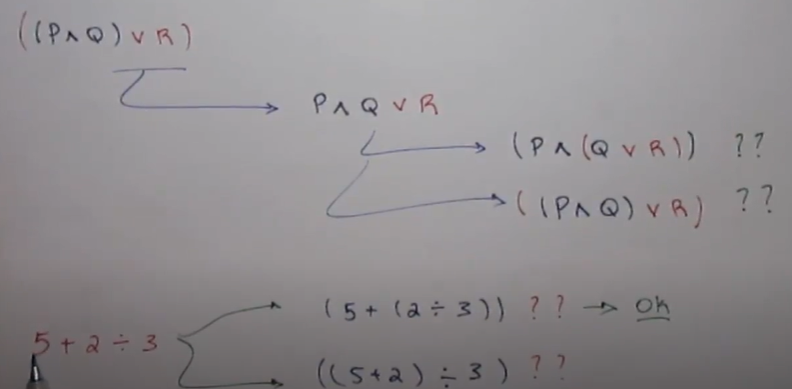 ((P∧Q) ∨ R)
P∧Q ∨ R
(P∧(Q ∨ R)) ??
((P∧Q) ∨ R) ??
(5+(2÷3)) ?? → OK
5+2÷3
((5+2)÷3) ??